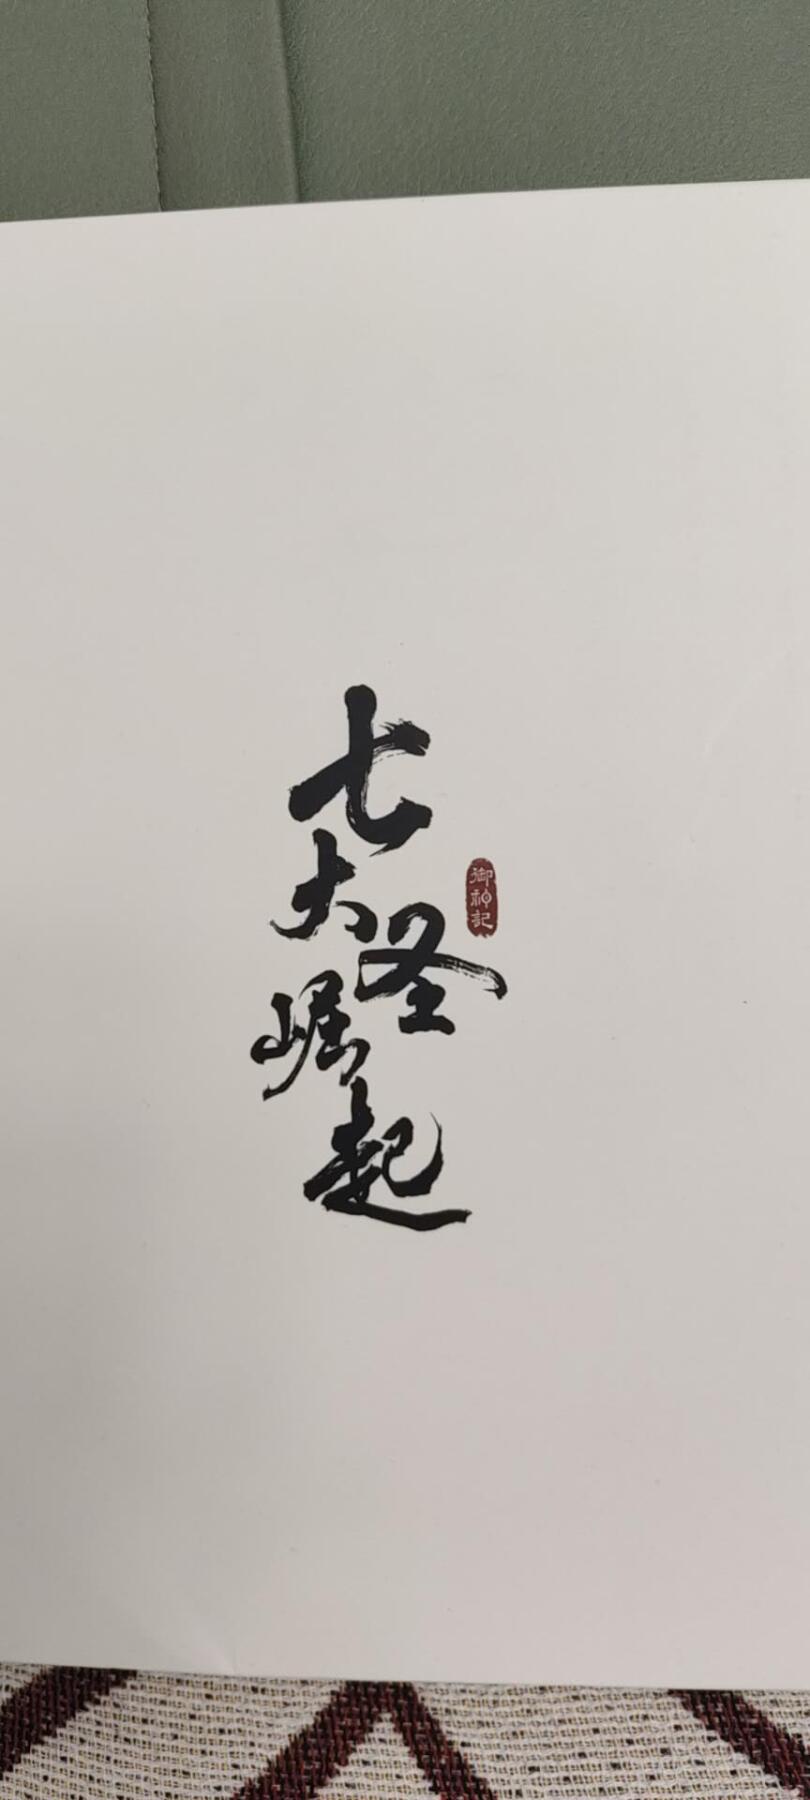 七大圣崛起
御神記